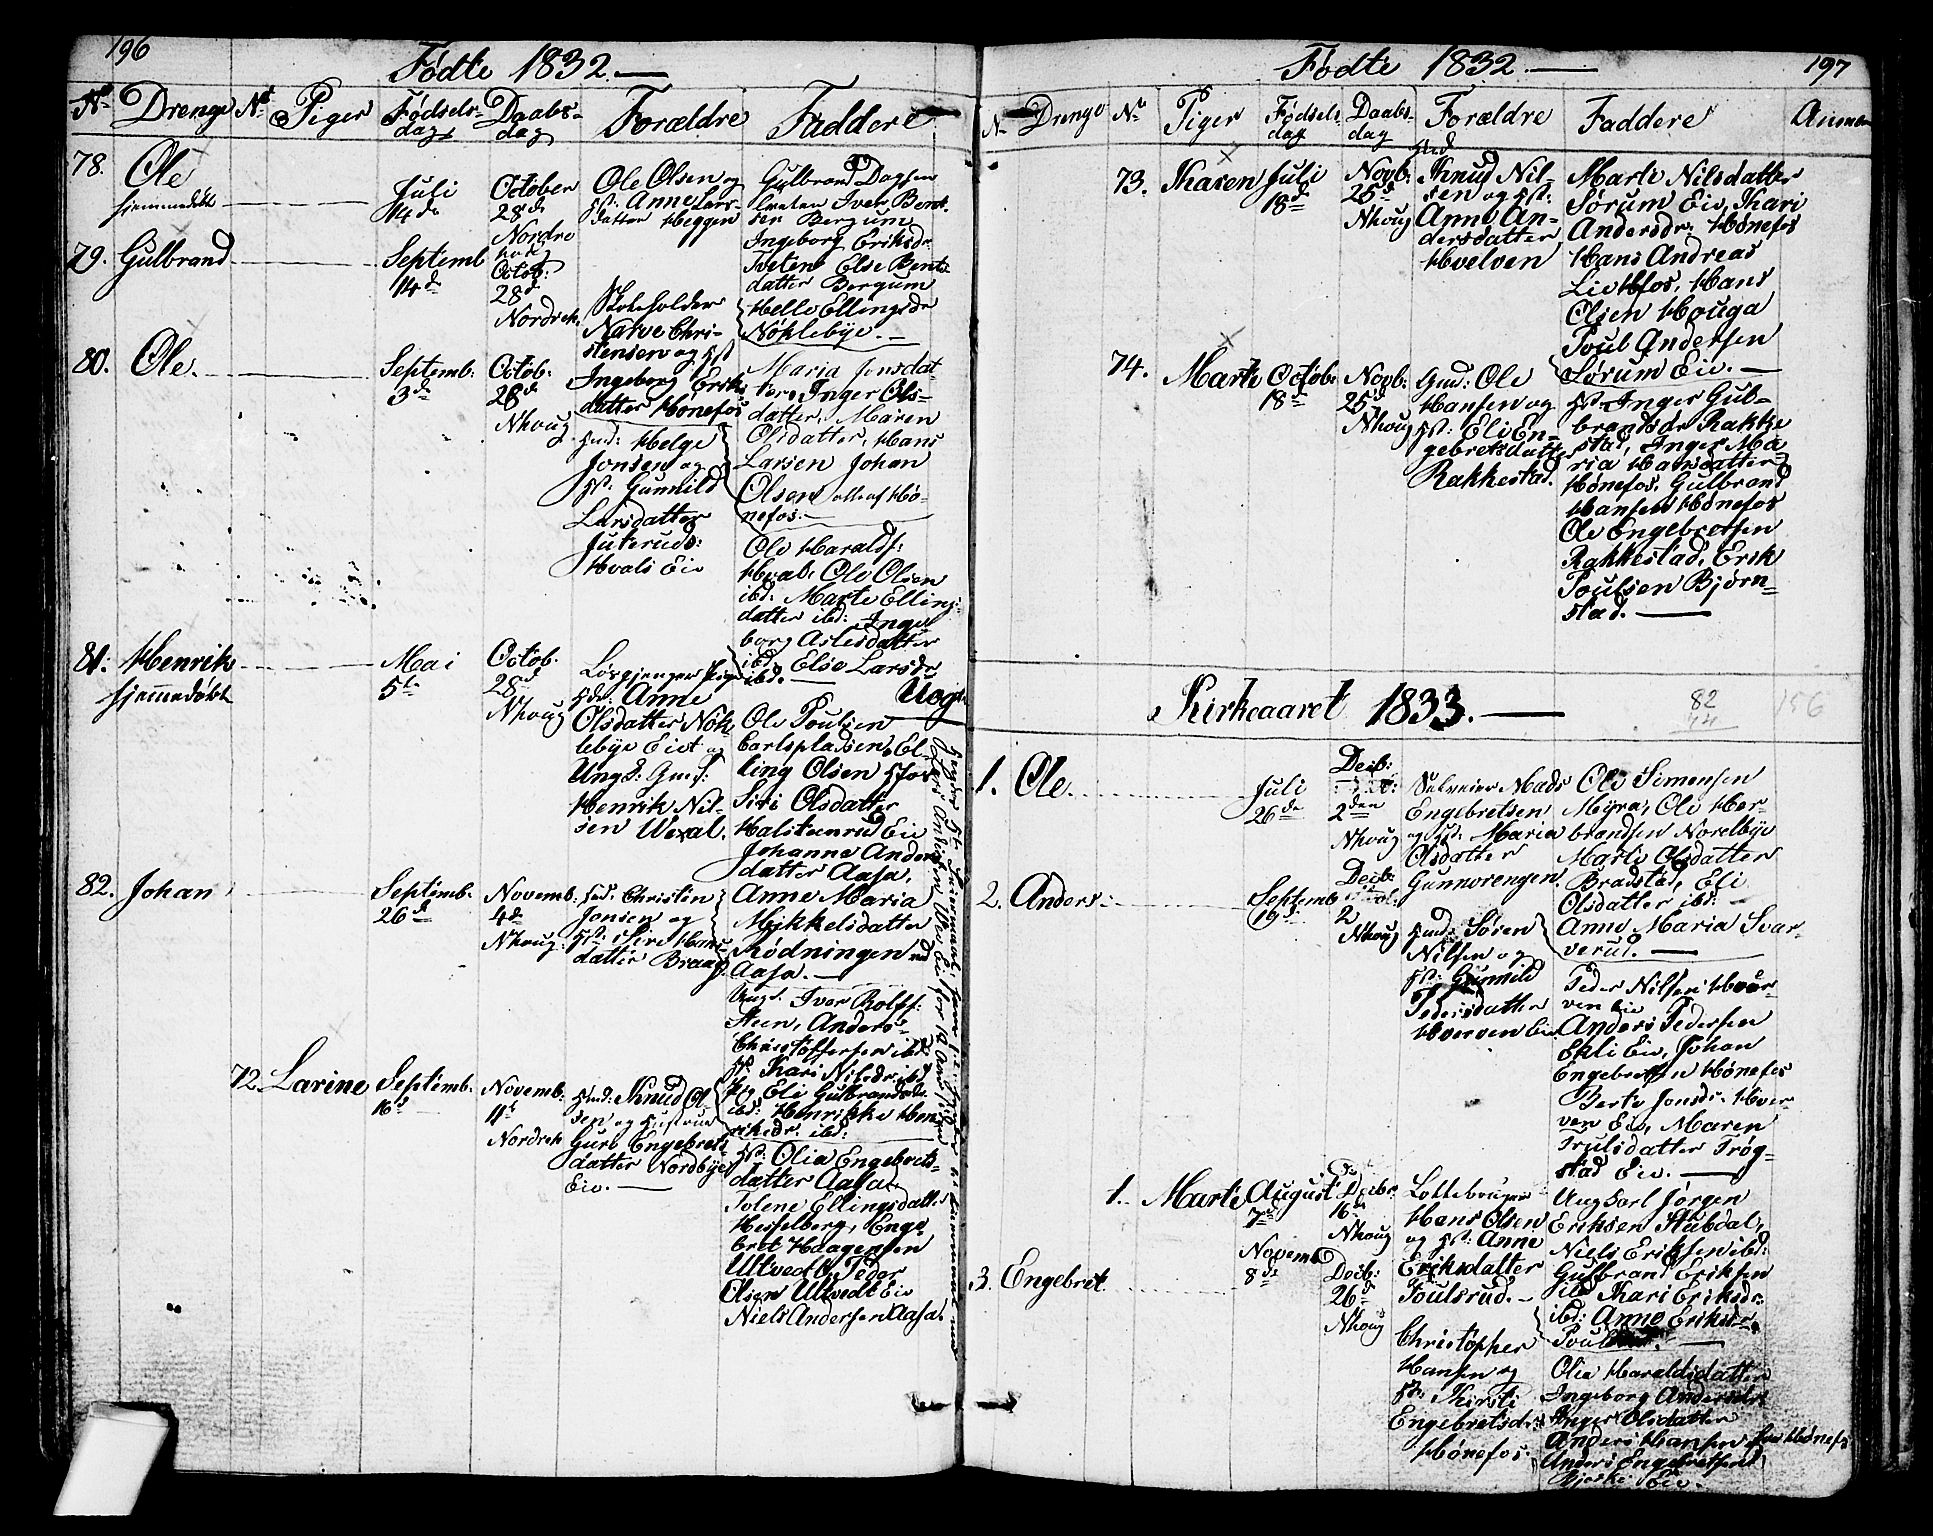 196
Fødte 1832.
No Drenge No Piger Fødselsdag Daabsdag Forældre Faddere
78. Ole
hjemmedøbt
Juli
14de
October
28de
Nordre
hov
Ole Olsen og
Hst: Anne Lars-
datter Heggen
Gulbrand Dagsen
Tveten Iver Bent-
sen Bergum
Ingeborg Eriksdr
Tveten Else Bents
datter Bergum
Helle Ellingsdr
Nøklebye.
79. Gulbrand
Septemb
14de
Octob:
28de
Nordreh.
Skoleholder
Narve Chri-
stensen og Hst
Ingeborg Eriks
datter Hönefos
Maria Jensdat-
ter, Inger Ols-
datter, Maren
Olsdatter, Hans
Larsen Johan
Olsen alle af Hö-
nefos.
80. Ole.
Septemb:
3de
Octob:
28de
Nhoug
Hmd: Helge
Jonsen og
Hst: Gunnild
Larsdatter
Juteruds:
Hvals Eie
Ole Haralds:
Hval, Ole Olsen
ibd: Marte Ellings
datter ibd: Inge
borg Aslesdatter
ibd. Else Larsdr
ibd.
81. Henrik
hjemmedøbt
Mai
5te
Octob.
28de
Nhoug
Løsgjenger Pige
Anne
Olsdatter Nøk
lebye Eiet og
Ungk: Gmf:
Henrik Nil-
sen Wexal.
Uægte
Ole Poulsen
Carlsplassen, El-
ling Olsen
Siri Olsdatter
Halsteenrud Eie
Johanne Anders
datter Aasa.
82. Johan
Septemb.
26de
Novemb:
4de
Nhoug:
Hmd. Christen
Jonsen og
Hst: Siri Hans
datter Braag.
Anne Maria
Mikkelsdatter
Rödningen
Aasa.
Ungk. Iver Rolfs:
Steen, Anders
Christoffersen ibd:
Kari Nilsdr ibd
Eli Gulbrandsdr
ibd: Henrikke Hen
riksdr: ibd:
72. Larine
Septemb.
16de
Novemb:
11te
Nordreh
Hmd: Knud Ol
sen og Hustrue
Guro Engebrets
datter Nordbye
Eie.
Hst: Olia Engebrets-
datter Aasa.
Tolene Ellingsdatt:
Hesselberg, Enge
bret Haagensen
Ultvedt, Peder
Olsen Ultvedt Eie
Niels Andersen Aasa.
197
Fødte 1832.
No Drenge No Piger Fødselsdag Daabsdag Forældre Faddere Anmæ
73. Karen
Juli
18de
Novb:
25de
Nhoug
Hmd
Knud Nil-
sen og Hst:
Anne An-
dersdatter
Hvelven
Marte Nilsdatter
Sørum Eie, Kari
Andersdr: Hönefos
Hans Andreas
Lie Hfos, Hans
Olsen Houga
Poul Andersen
Sørum Eie.
74. Marte
Octob:
18de
Novb:
25de
Nhoug
Gmd: Ole
Hansen og
Hst: Eli En-
gebretsdatter
Rakkestad.
Hst: Inger Gul-
brandsdr Rakke
stad, Inger Ma
ria Hansdatter
Hönefos, Gulbrand
Hansen Hönefos
Ole Engebretsen
Rakkestad, Erik
Poulsen Bjørn-
stad.
Kirkeaaret 1833.
82
74
156
1. Ole
Juli
26de
Decb:
2den
Nhoug
Selveier Mads
Engebretsen
og Hst: Maria
Olsdatter
Gunnorengen.
Ole Simensen
Myra, Ole Her-
brandsen Norelbye
Marte Olsdatter
Bradstad, Eli
Olsdatter ibd:
Anne Maria Svar-
verud.
2. Anders
Septemb
19de
Decb:
2
Nhoug
Hmd: Søren
Nilsen og
Hst: Gunnild
Pedersdatter
Hverven Eie
Peder Nilsen Hver-
ven Eie
Anders Pedersen
Ekli Eie, Johan
Engebretsen Hönefos
Berte Jonsdr: Hver-
ven Eie, Maren
Trulsdatter Trøg-
stad Eie.
1. Marte
August
7de
Decbr
16de
Nhoug
Hans Olsen
og Hst: Anne
Eriksdatter
Poulsrud.
Ungkarl Jørgen
Eriksen Stubdal,
Niels Eriksen ibd:
Gulbrand Eriksen
ibd Kari Eriksdr:
ibd: Anne Eriksdr
3. Engebret
Novemb
8de
Decb:
26de
Nhoug
Christopher
Hansen og
Hst: Kirsti
Engebretsdr:
Hönefos:
Olia Haraldsdatter
Ingeborg Andersdr
Inger Olsdatter
Anders Hansen fra Hönefos
Anders Engebretsen
Bjerke Eie.